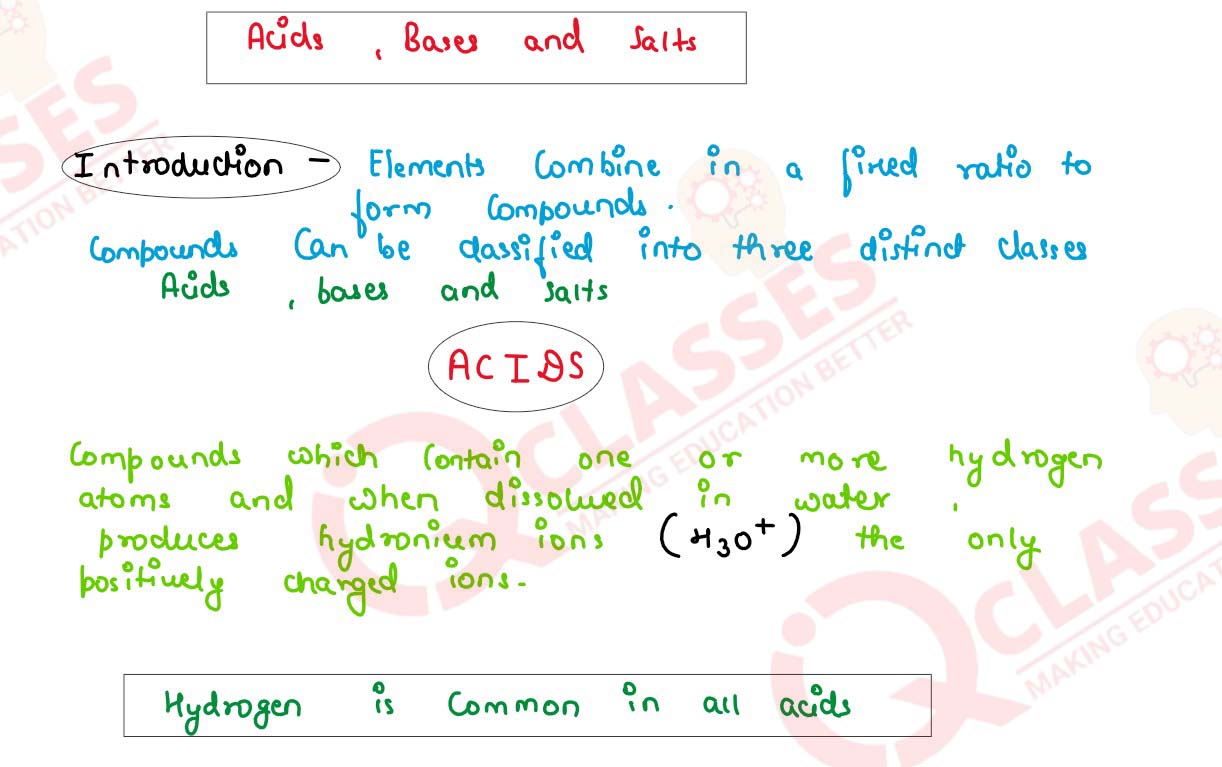 Acids, Bases and Salts
Introduction - Elements Combine in a fixed ratio to
form Compounds.
Compounds Can be classified into three distinct classes
Acids, bases and salts
ACIDS
Compounds which Contain one or more hydrogen
atoms and when dissolved in water,
produces hydronium ions (H₃O⁺) the only
positively charged ions.
Hydrogen is Common in all acids
iQ CLASSES
MAKING EDUCATION BETTER
iQ CLASS
MAKING EDUCAT
SSES
ATION BETTER